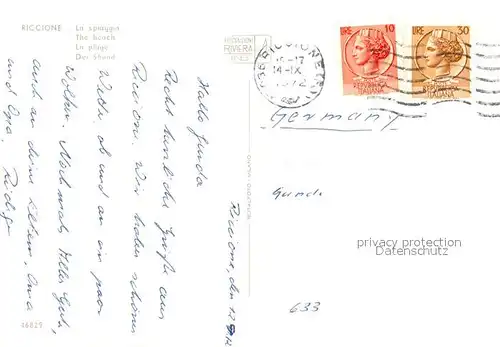 RICCIONE
La spiaggia
The beach
La plage
Der Strand
RIVIERA
LIRE 10
LIRE 30
REPVBBLICA
ITALIANA
REPVBBLICA
ITALIANA
RICCIONE
16-17
14-IX
1972
Germany
Hallo Gunda
Recht herzliche Grüße aus
Riccione. Wir haben schönes
ab und an ein paar
Wolken. Nochmals Alles Gute,
auch an deine lieben, Oma
und Opa. Rüdiger
Riccione, den 12.9.72
Gunda
privacy protection
Datenschutz
633
46829